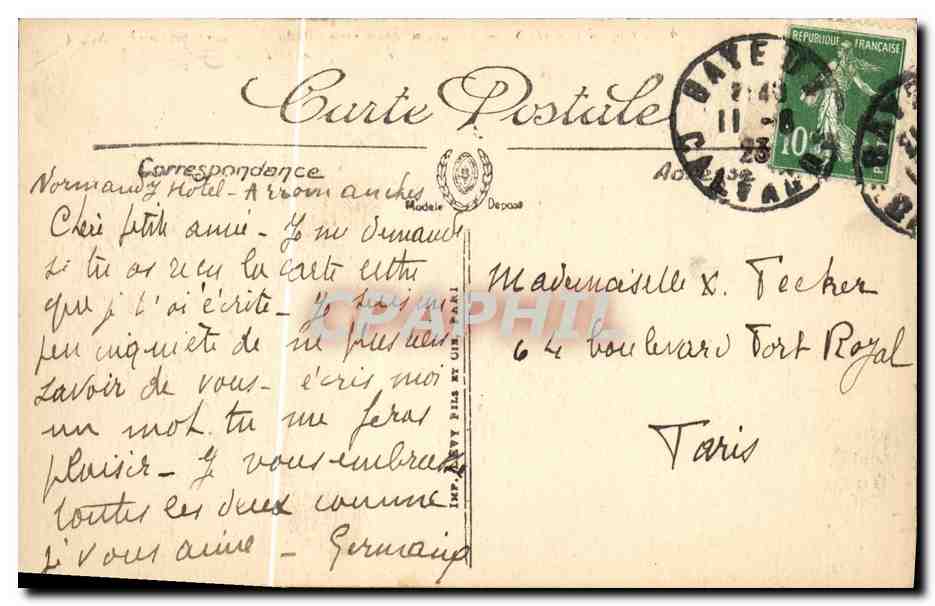 Carte Postale
Correspondance
Modèle Déposé
Adresse
RÉPUBLIQUE FRANÇAISE
10
BAYEUX
11 -8
23
CALVADOS
Normandy Hôtel - Arromanches
Chère petite amie - Je me demande
si tu as reçu la carte lettre
que je t'ai écrite - Je suis un
peu inquiète de ne plus rien
savoir de vous - écris moi
un mot tu me feras
plaisir - Je vous embrasse
toutes les deux comme
je vous aime - Germaine
IMP. LÉVY FILS ET CIE, PARI
Mademoiselle X. Fecker
64 boulevard Port Royal
Paris
CPAPHIL